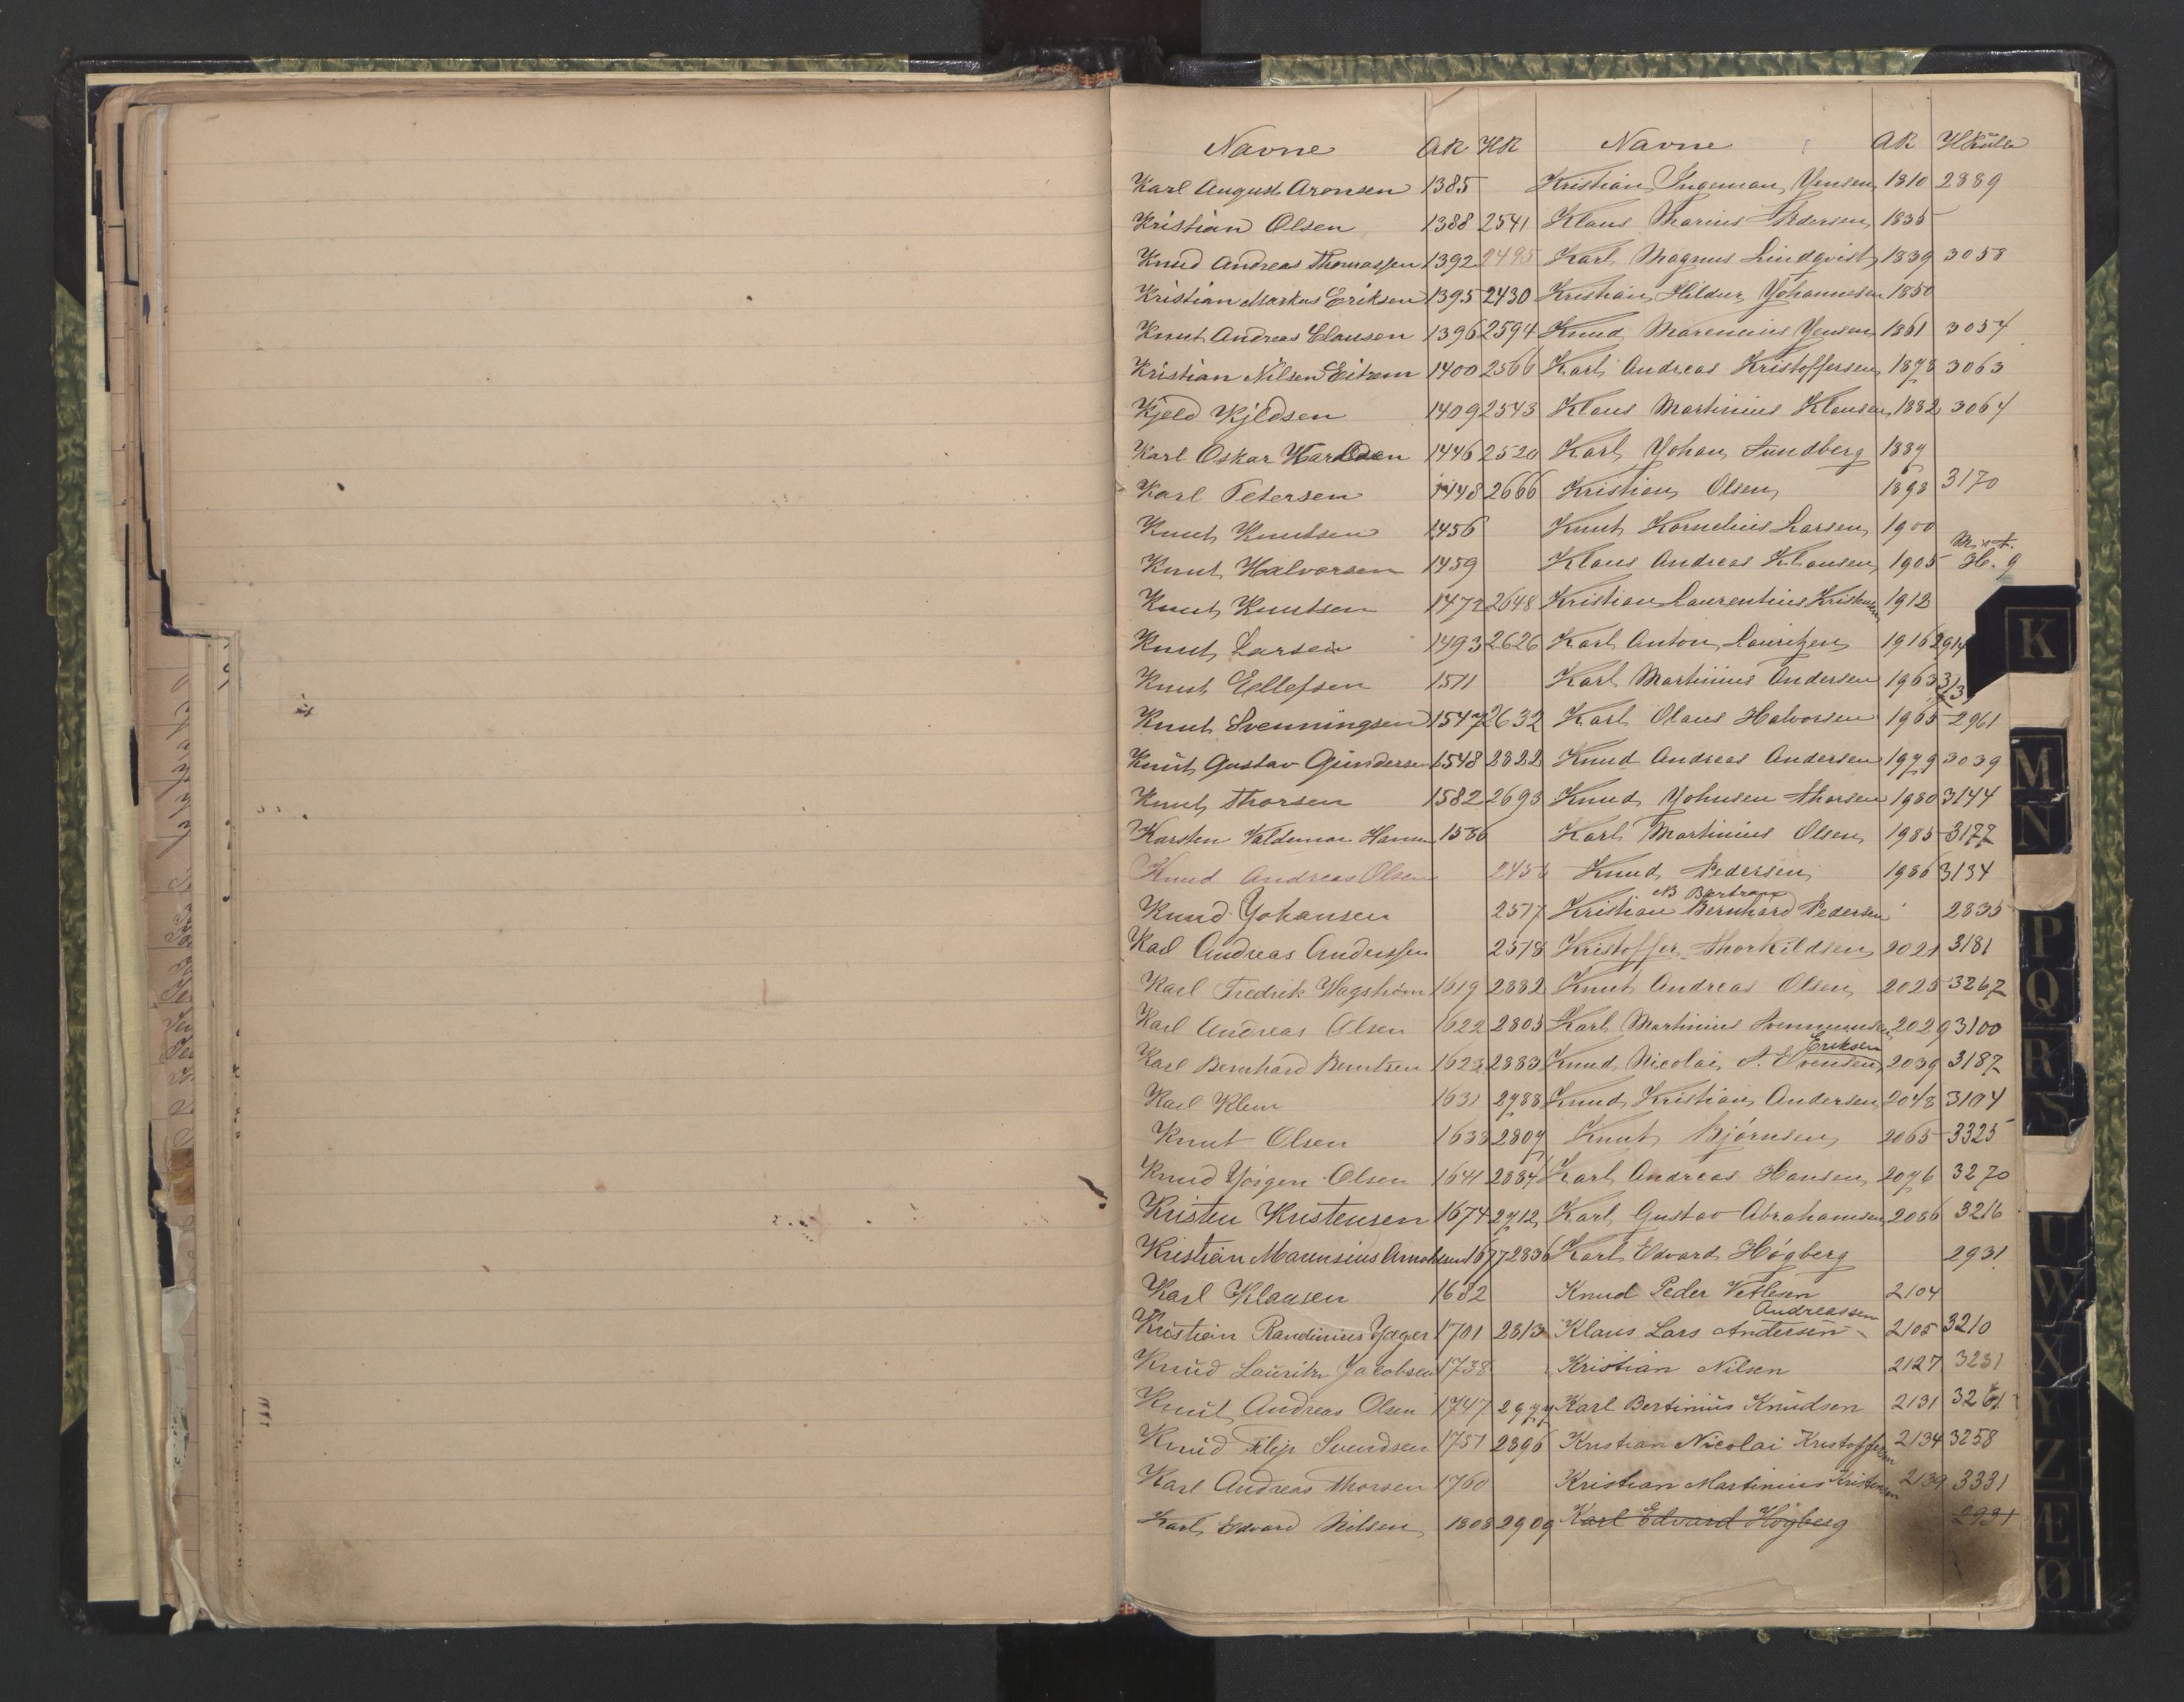 Navne AR HR
Karl August Aronsen 1385
Kristian Olsen 1388 2541
Knud Andreas Thomassen 1392 2495
Kristian Markus Eriksen 1395 2430
Knut Andreas Clausen 1396 2594
Kristian Nilsen Eitrem 1400 2566
Kjeld Kjeldsen 1409 2543
Karl Oskar 1446 2520
Karl Petersen 1448 2666
Knut Knutsen 1456
Knut Halvorsen 1459
Knut Knutsen 1472 2648
Knut Larsen 1493 2626
Knut Ellefsen 1511
Knut Svenningsen 1547 2632
Knut Gustav Gundersen 1548 2822
Knut Thorsen 1582 2693
Karsten Valdemar Hansen 1586
Knud Andreas Olsen
Knud Yohansen 2577
Karl Andreas Anderssen 2578
Karl Fredrik Hagstrøm 1619 2882
Karl Andreas Olsen 1622 2805
Karl Bernhard Berntsen 1623 2883
Karl Klem 1631 2788
Knut Olsen 1633 2807
Knud Yørgen Olsen 1641 2884
Kristen Kristensen 1674 2712
Kristian Marensius Arnoldsen 1677 2836
Karl Klausen 1682
Kristian Randinius Yæger 1701 2813
Knud Lauritz Jacobsen 1738
Knut Andreas Olsen 1747 2977
Knud Filip Svendsen 1751 2896
Karl Andreas Thorsen 1760
Karl Edvard Nilsen 1808 2909
Navne AR HRulle
Kristian Ingeman Yensen 1810 2889
Klaus Marius Pedersen 1835
Karl Magnus Lindqvist 1839 3058
Kristian Hildur Yohannesen 1850
Knud Marenius Yensen 1861 3054
Karl Andreas Kristoffersen 1878 3063
Klaus Martinius Klausen 1882 3064
Karl Yohan Sundberg 1889
Kristian Olsen 1898 3170
Knut Kornelius Larsen 1900
Klaus Andreas Klausen 1905
Kristian Laurentius Kristensen 1912
Karl Anton Lauritzen 1916 2914
Karl Martinius Andersen 1963
Karl Olaus Halvorsen 1965 2961
Knud Andreas Andersen 1979 3039
Knud Yohnsen Thorsen 1980 3144
Karl Martinius Olsen 1985 3177
Knud Pedersen 1986 3134
NB Bertram
Kristian Bernhard Pedersen 2835
Kristoffer Thorkildsen 2021 3181
Knut Andreas Olsen 2025 3267
Karl Martinius 2029 3100
Eriksen
Knud Nicolai S. Evensen 2039 3187
Knud Kristian Andersen 2043 3194
Knut Bjørnsen 2065 3325
Karl Andreas Hansen 2076 3270
Karl Gustav Abrahamsen 2086 3216
Karl Edvard Høgberg 2931
Knud Peder Vetlesen 2104
Andreassen
Klaus Lars Andersen 2105 3210
Kristian Nilsen 2127 3231
Karl Bertinius Knudsen 2131 3261
Kristian Nicolai Kristoffersen 2134 3258
Kristian Martinius Kristensen 2139 3331
Karl Edvard Høgberg 2931
K
M
N
P
Q
R
S
U
W
X
Y
Z
Æ
Ø